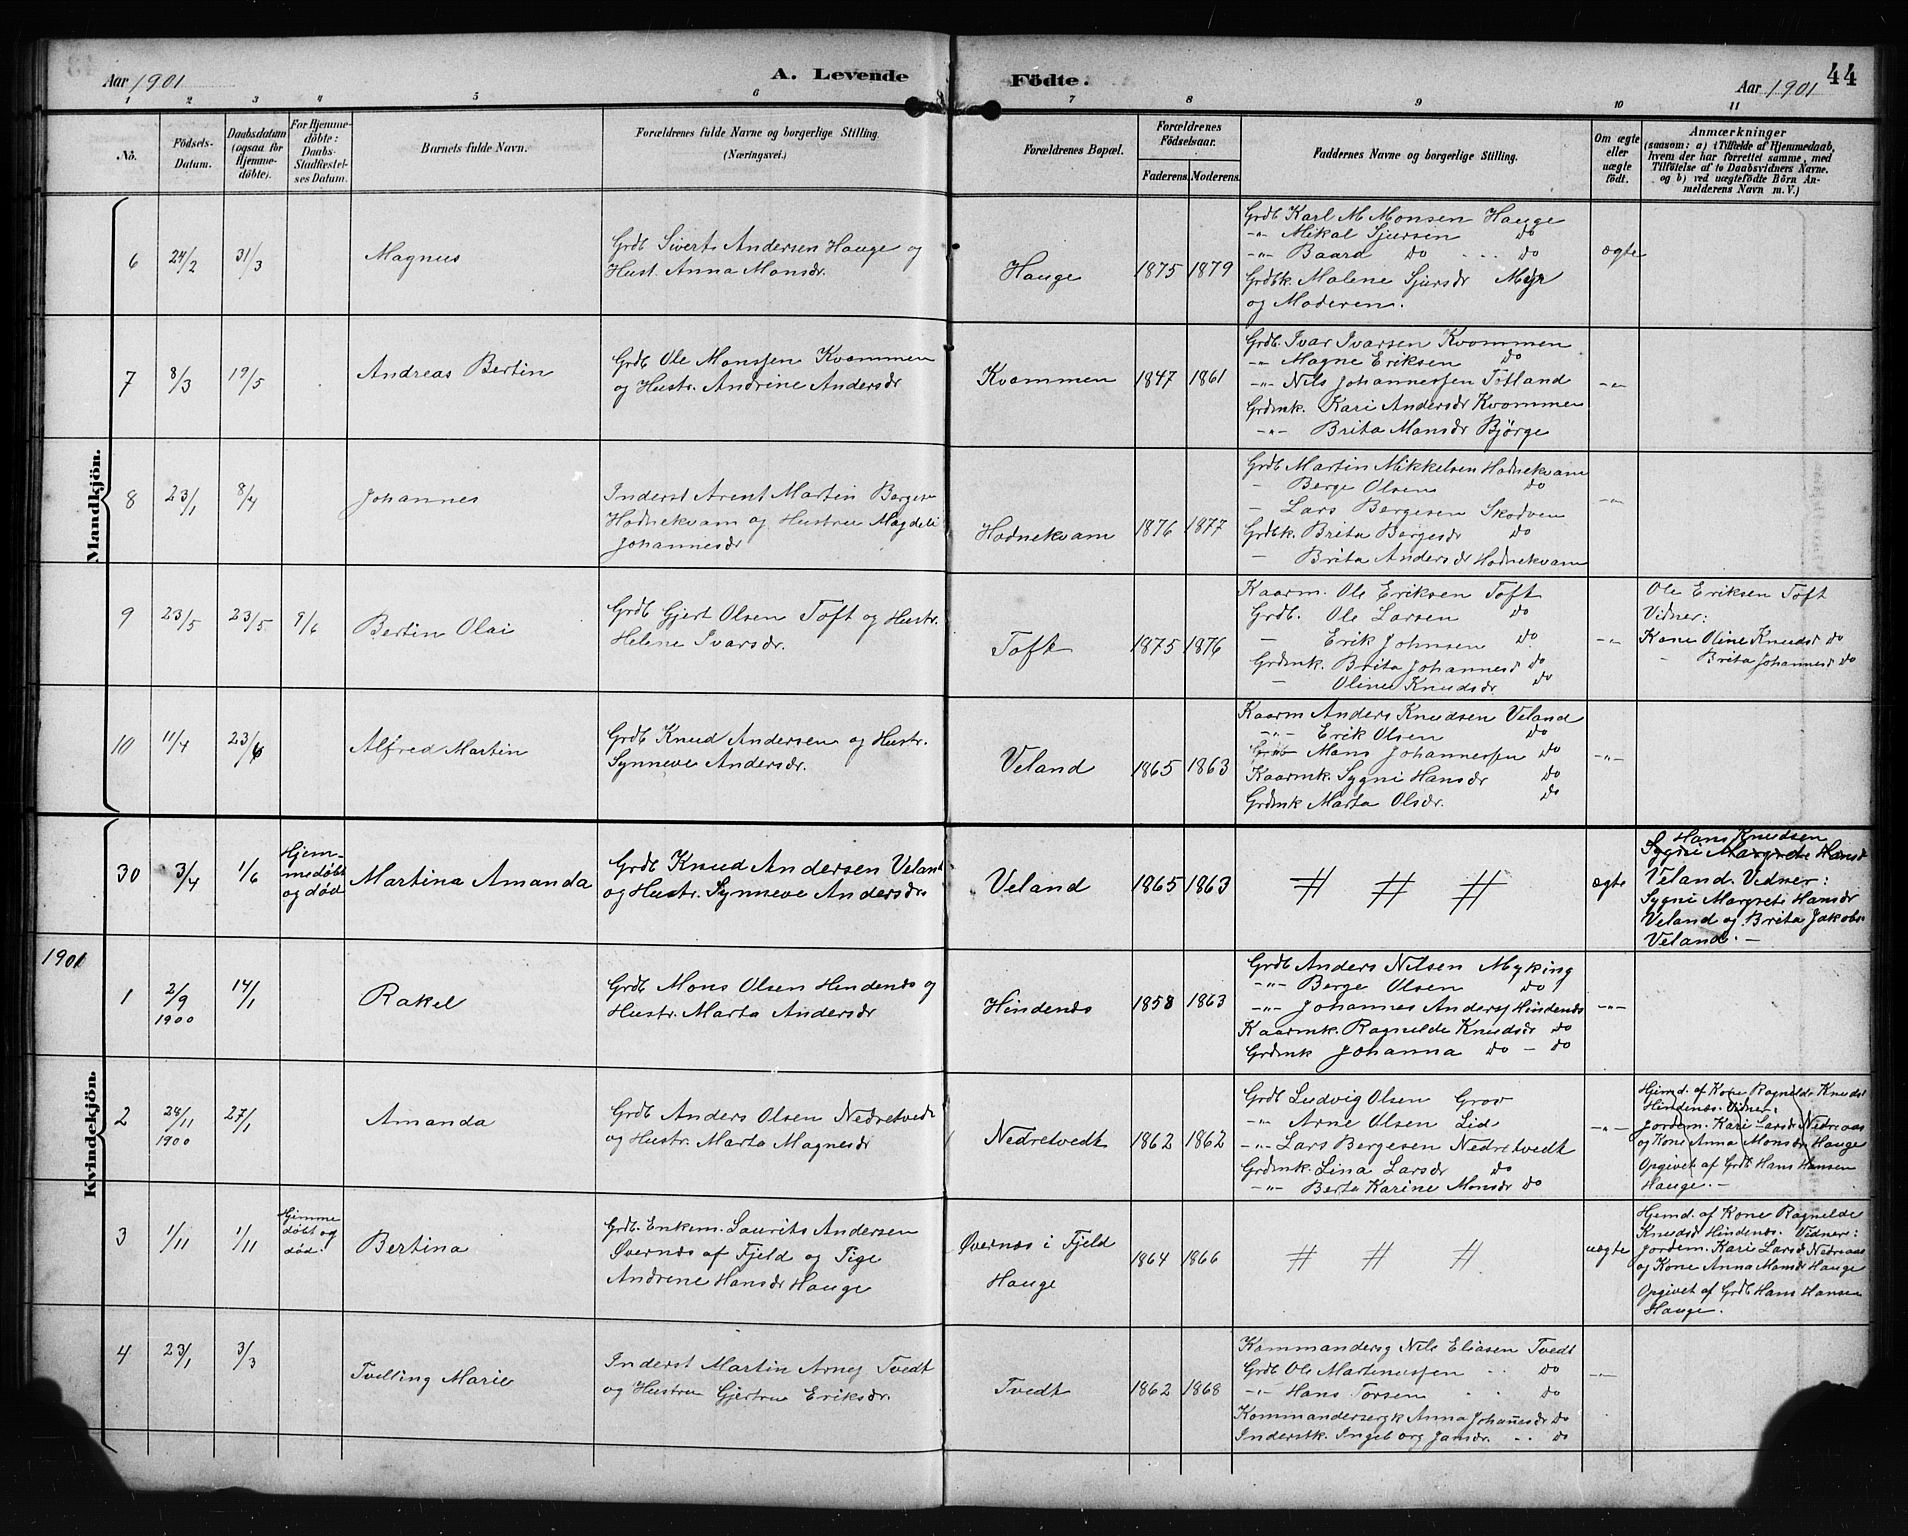 Aar 1901
A. Levende
Födte.
Aar 1901
44
1 2 3 4 5 6 7 8 9 10 11
No.
Födsels-Datum.
Daabsdatum (ogsaa for Hjemme-döbte).
For Hjemme-döbte: Daabs-Stadfæstel-ses Datum.
Barnets fulde Navn.
Forældrenes fulde Navne og borgerlige Stilling.
(Næringsvei.)
Forældrenes Bopæl.
Forældrenes Födselsaar.
Faderens. Moderens.
Faddernes Navne og borgerlige Stilling.
Om ægte eller uægte födt.
Anmærkninger
(saasom: a) i Tilfælde af Hjemmedaab,
hvem der har forrettet samme, med
Tilföielse af to Daabsvidners Navne.
og b) ved uægtefödte Börn An-
melderens Navn m. V.)
Mandkjön.
6 24/2 31/3 Magnus
Grdb Sivert Andersen Hauge og
Hust. Anna Monsdr.
Hauge 1875 1879
Grdb Karl M Monsen Hauge
-"- Mikal Sjursen do
-"- Baard do do
Grdbk. Malene Sjursdr Myr
og Moderen.
ægte
7 8/3 19/5 Andreas Bertin
Grdb Ole Monssen Kvammen
og Hustr. Andrine Andersdr
Kvammen 1847 1861
Grdb. Ivar Ivarsen Kvammen
-"- Magne Eriksen do
-"- Nils Johannessen Totland
Grdmk. Kari Andersdr Kvammen
-"- Brita Monsdr Bjørge
-"-
8 23/1 8/4 Johannes
Inderst Arent Martin Bergesen
Hodnekvam og Hustru Magdeli
Johannesdr
Hodnekvam 1876 1877
Grdb Martin Mikkelsen Hodnekvam
- Berge Olsen do
- Lars Bergesen Skodven
Grdbk. Brita Bergesdr do
- Brita Andersdr Hodnekvam
-"-
9 23/5 23/5 9/6 Bertin Olai
Grdb Gjert Olsen Toft og Hustr.
Helene Ivarsdr.
Toft 1875 1876
Kaarm. Ole Eriksen Toft
Grdb. Ole Larsen do
- Erik Johnsen do
Grdmk. Brita Johannesd do
- Oline Knudsdr do
-"-
Ole Eriksen Toft
Vidner:
Kone Oline Knudsd do
- Brita Johannesd do
10 11/4 23/6 Alfred Martin
Grdb Knud Andersen og Hustr.
Synneve Andersdr.
Veland 1865 1863
Kaarm Anders Knudsen Veland
-"- Erik Olsen do
Mons Johannessen do
Kaarmk. Sygni Hansdr do
Grdmk Marta Olsdr. do
-"-
Kvindekjön.
30 3/4 1/6 Hjem-
medøbt
og død
Martina Amanda
Grdb Knud Andersen Veland
og Hustr. Synneve Andersdr
Veland 1865 1863
# # #
ægte
Hans Knudsen
Sygni Margrete Hansd
Veland. Vidner:
Sygni Margrete Hansdr
Veland og Brita Jakobs-
Veland. -
1901
1 2/9 1900 14/1 Rakel
Grdb Mons Olsen Hindenæs og
Hustr. Marta Andersdr
Hindenæs 1858 1863
Grdb Anders Nilsen Myking
-"- Berge Olsen do
-"- Johannes Anders Hindenæs
Kaarmk. Ragnilde Knudsdr do
Grdmk Johanna do - do
-"-
2 24/11 1900 27/1 Amanda
Grdb Anders Olsen Nedretvedt
og Hustr. Marta Magnesdr
Nedretvedt 1862 1862
Grdb Ludvig Olsen Grov
-"- Arne Olsen Lid
-"- Lars Bergesen Nedretvedt
Grdmk. Lina Larsdr do
-"- Berta Karine Monsdr do
-"-
Hjemd. af Kone Ragnilde Knudsd
Hindenæs. Vidner:
Jordem. Kari Larsdr Nedreaas
og Kone Anna Monsdr Hauge
Opgivet af Grdb Hans Hansen
Hauge. -
3 1/11 1/11 Hjemme
døbt og
død.
Bertina
Grdb. Enkem. Laurits Andersen
Øvernæs af Fjeld og Pige
Andrene Hansdr Hauge
Øvernæs i Fjeld
Hauge
1864 1866
# # #
uægte
Hjemd. af Kone Ragnilde
Knudsd Hindenæs. Vidner:
Jordem. Kari Larsd Nedreaas
og Kone Anna Monsdr Hauge
Opgivet af Grdb Hans Hansen
Hauge.
4 23/1 3/3 Tvilling Marie
Inderst Martin Arnes Tvedt
og Hustru Gjertru Eriksdr.
Tvedt 1862 1868
Kommandersg Nils Eliasen Tvedt
Grdb Ole Martinussen do
-"- Hans Torsen do
Kommandersergk Anna Johanesdr do
Inderstk. Ingeborg Jansdr. do
-"-